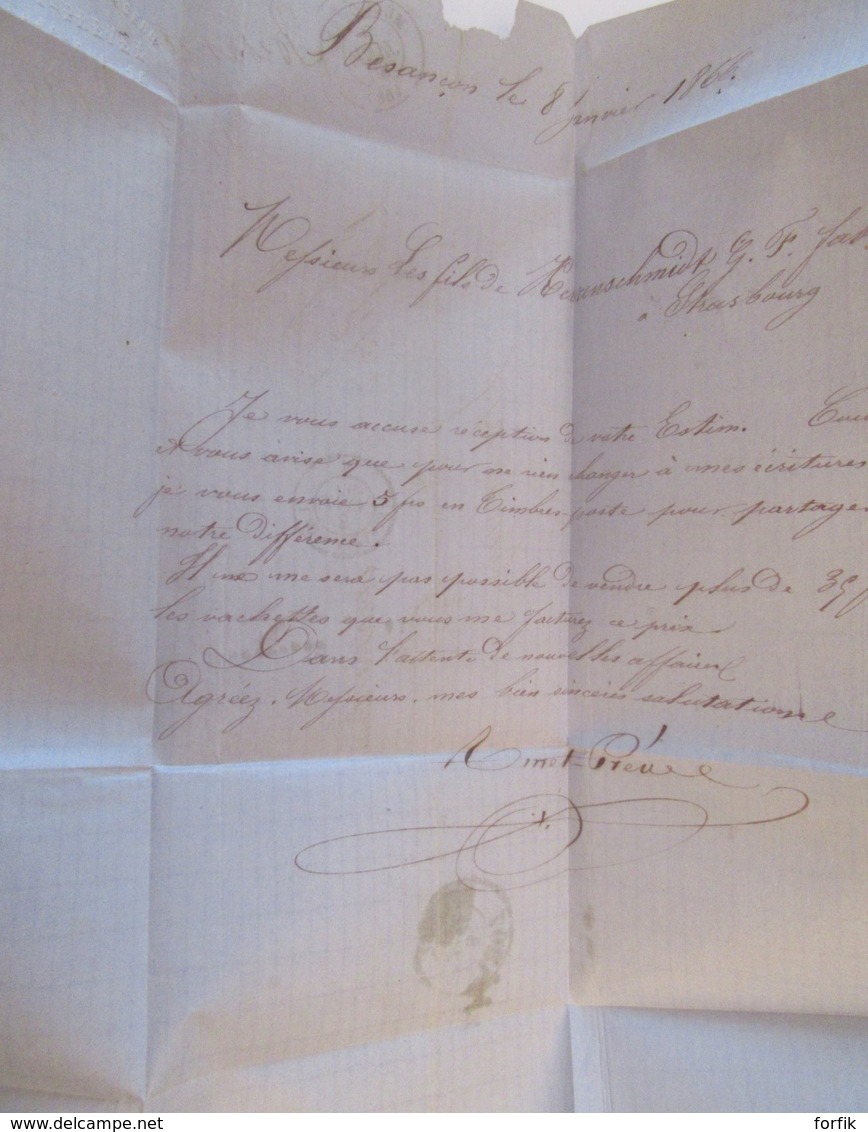 Besançon le 8 Janvier 1866.
Messieurs Les fils de Herrenschmidt G. F. fab
à Strasbourg
Je vous accuse réception de votre Estim. Cour
et vous avise que pour ne rien changer à mes écritures
je vous envoie 5 frs en Timbres-poste pour partager
notre différence.
Il ne me sera pas possible de vendre plus de
les vachettes que vous me facturez ce prix
Dans l'attente de nouvelles affaires
Agréez, Messieurs, mes bien sincères salutations
delcampe.net
forfik